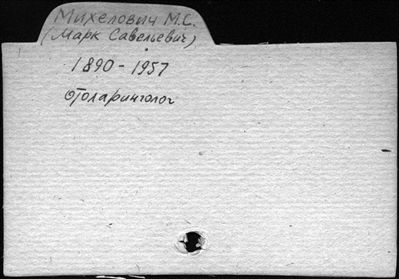 Михелович М.С.
(Марк Савельевич)
1890-1957
отоларинголог